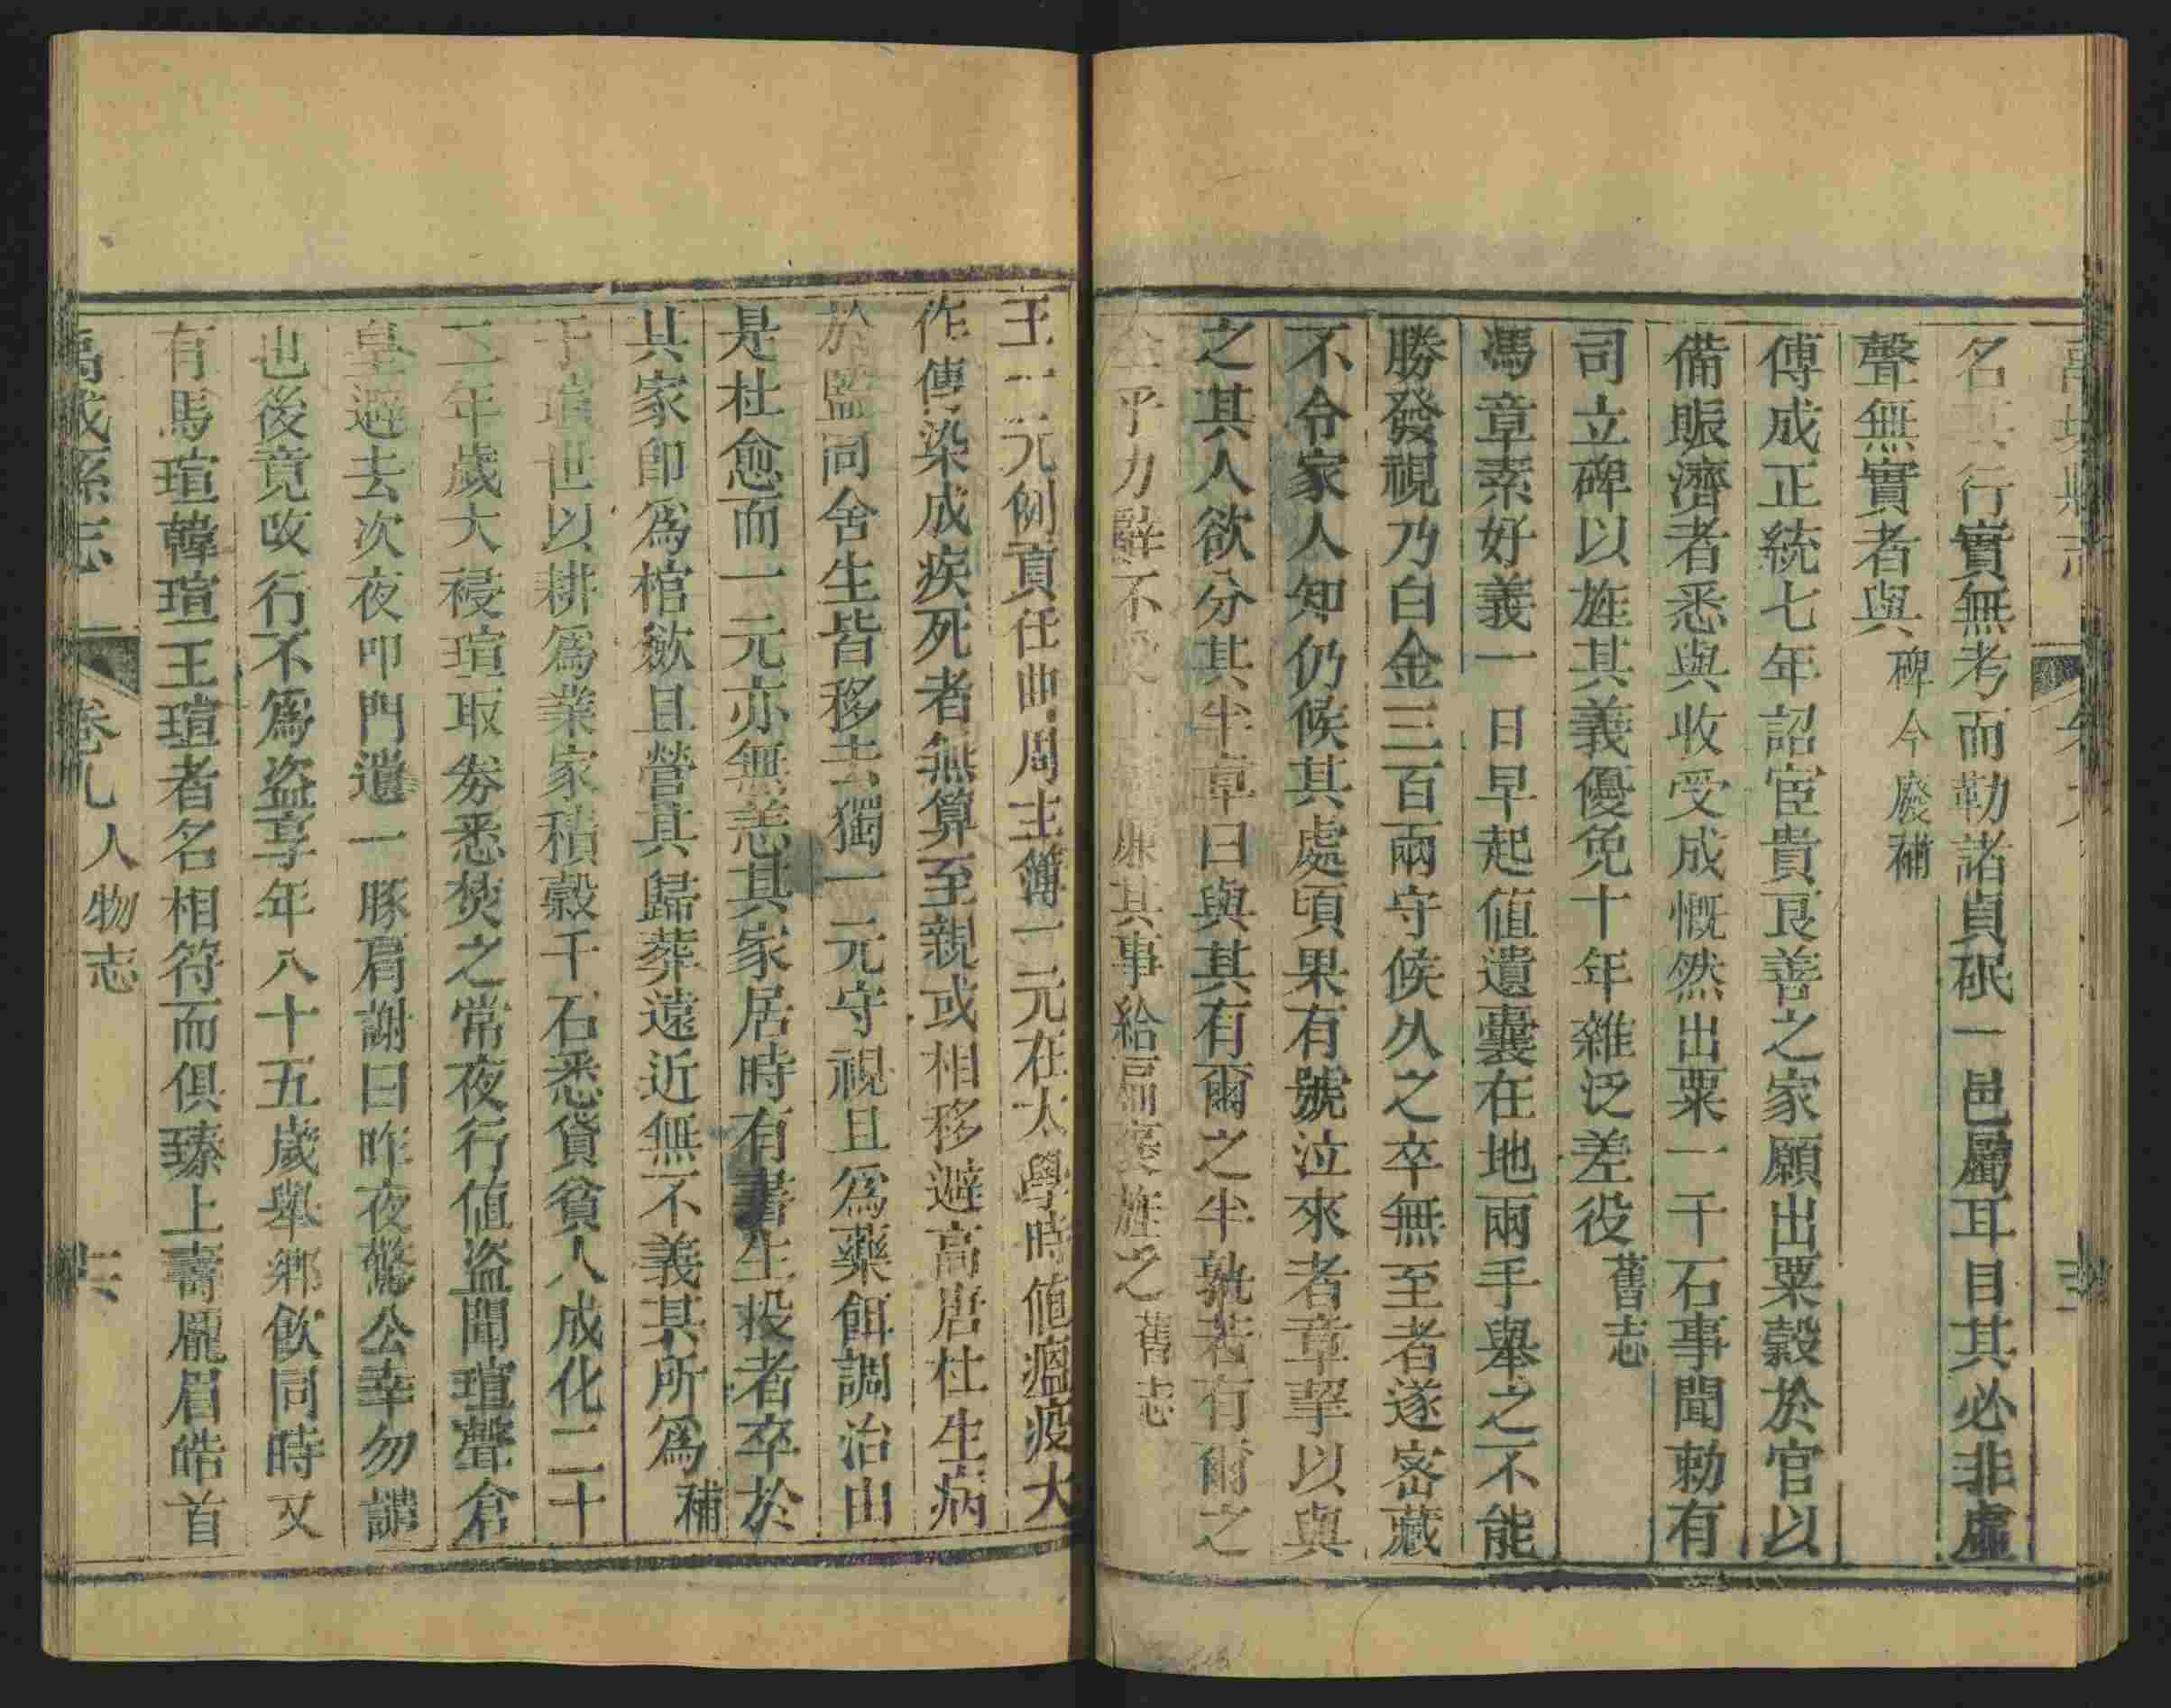 名其行實無考而勒諸貞珉一邑屬耳目其必非虛
聲無實者與碑今廢補
傅成正統七年詔宦貴良善之家願出粟穀於官以
備賑濟者悉與收受成慨然出粟一千石事聞勅有
司立碑以旌其義優免十年雜泛差役舊志
馮章素好義一日早起值遺囊在地兩手舉之不能
勝發視乃白金三百兩守候久之卒無至者遂密藏
不令家人知仍候其處頃果有號泣來者章挈以與
之其人欲分其半章曰與其有爾之半孰若有爾之
全乎力辭不受上廉其事給匾獎旌之舊志
王一元例貢任曲周主簿一元在太學時値瘟疫大
作傳染成疾死者無算至親或相移避高唐杜生病
於監同舍生皆移去獨一元守視且爲藥餌調治由
是杜愈而一元亦無恙其家居時有書生投者卒於
其家即爲棺歛且營其歸葬遠近無不義其所爲補
于瑄世以耕爲業家積穀千石悉貸貧人成化二十
二年歲大祲瑄取券悉焚之常夜行值盜聞瑄聲倉
皇避去次夜叩門遺一豚肩謝曰昨夜驚公幸勿講
也後竟改行不爲盜享年八十五歲舉鄉飲同時又
有馬瑄韓瑄王瑄者名相符而俱臻上壽龐眉皓首
禹城縣志 卷九 人物志 十六